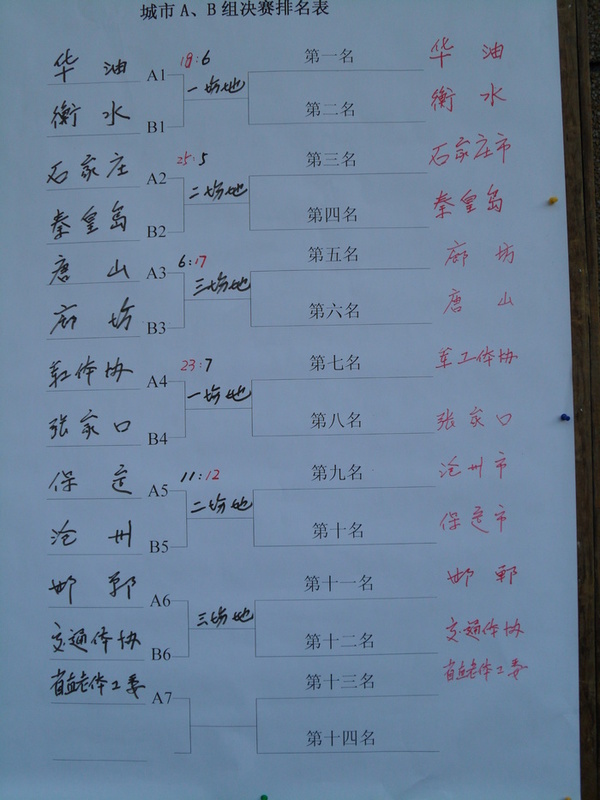 城市A、B组决赛排名表
华油 A1 18:6 第一名 华油
一场地
衡水 B1 第二名 衡水
石家庄 A2 25:5 第三名 石家庄市
二场地
秦皇岛 B2 第四名 秦皇岛
唐山 A3 6:17 第五名 廊坊
三场地
廊坊 B3 第六名 唐山
军工体协 A4 23:7 第七名 军工体协
一场地
张家口 B4 第八名 张家口
保定 A5 11:12 第九名 沧州市
二场地
沧州 B5 第十名 保定市
邯郸 A6 第十一名 邯郸
三场地
交通体协 B6 第十二名 交通体协
省直老体工委 A7 第十三名 省直老体工委
第十四名